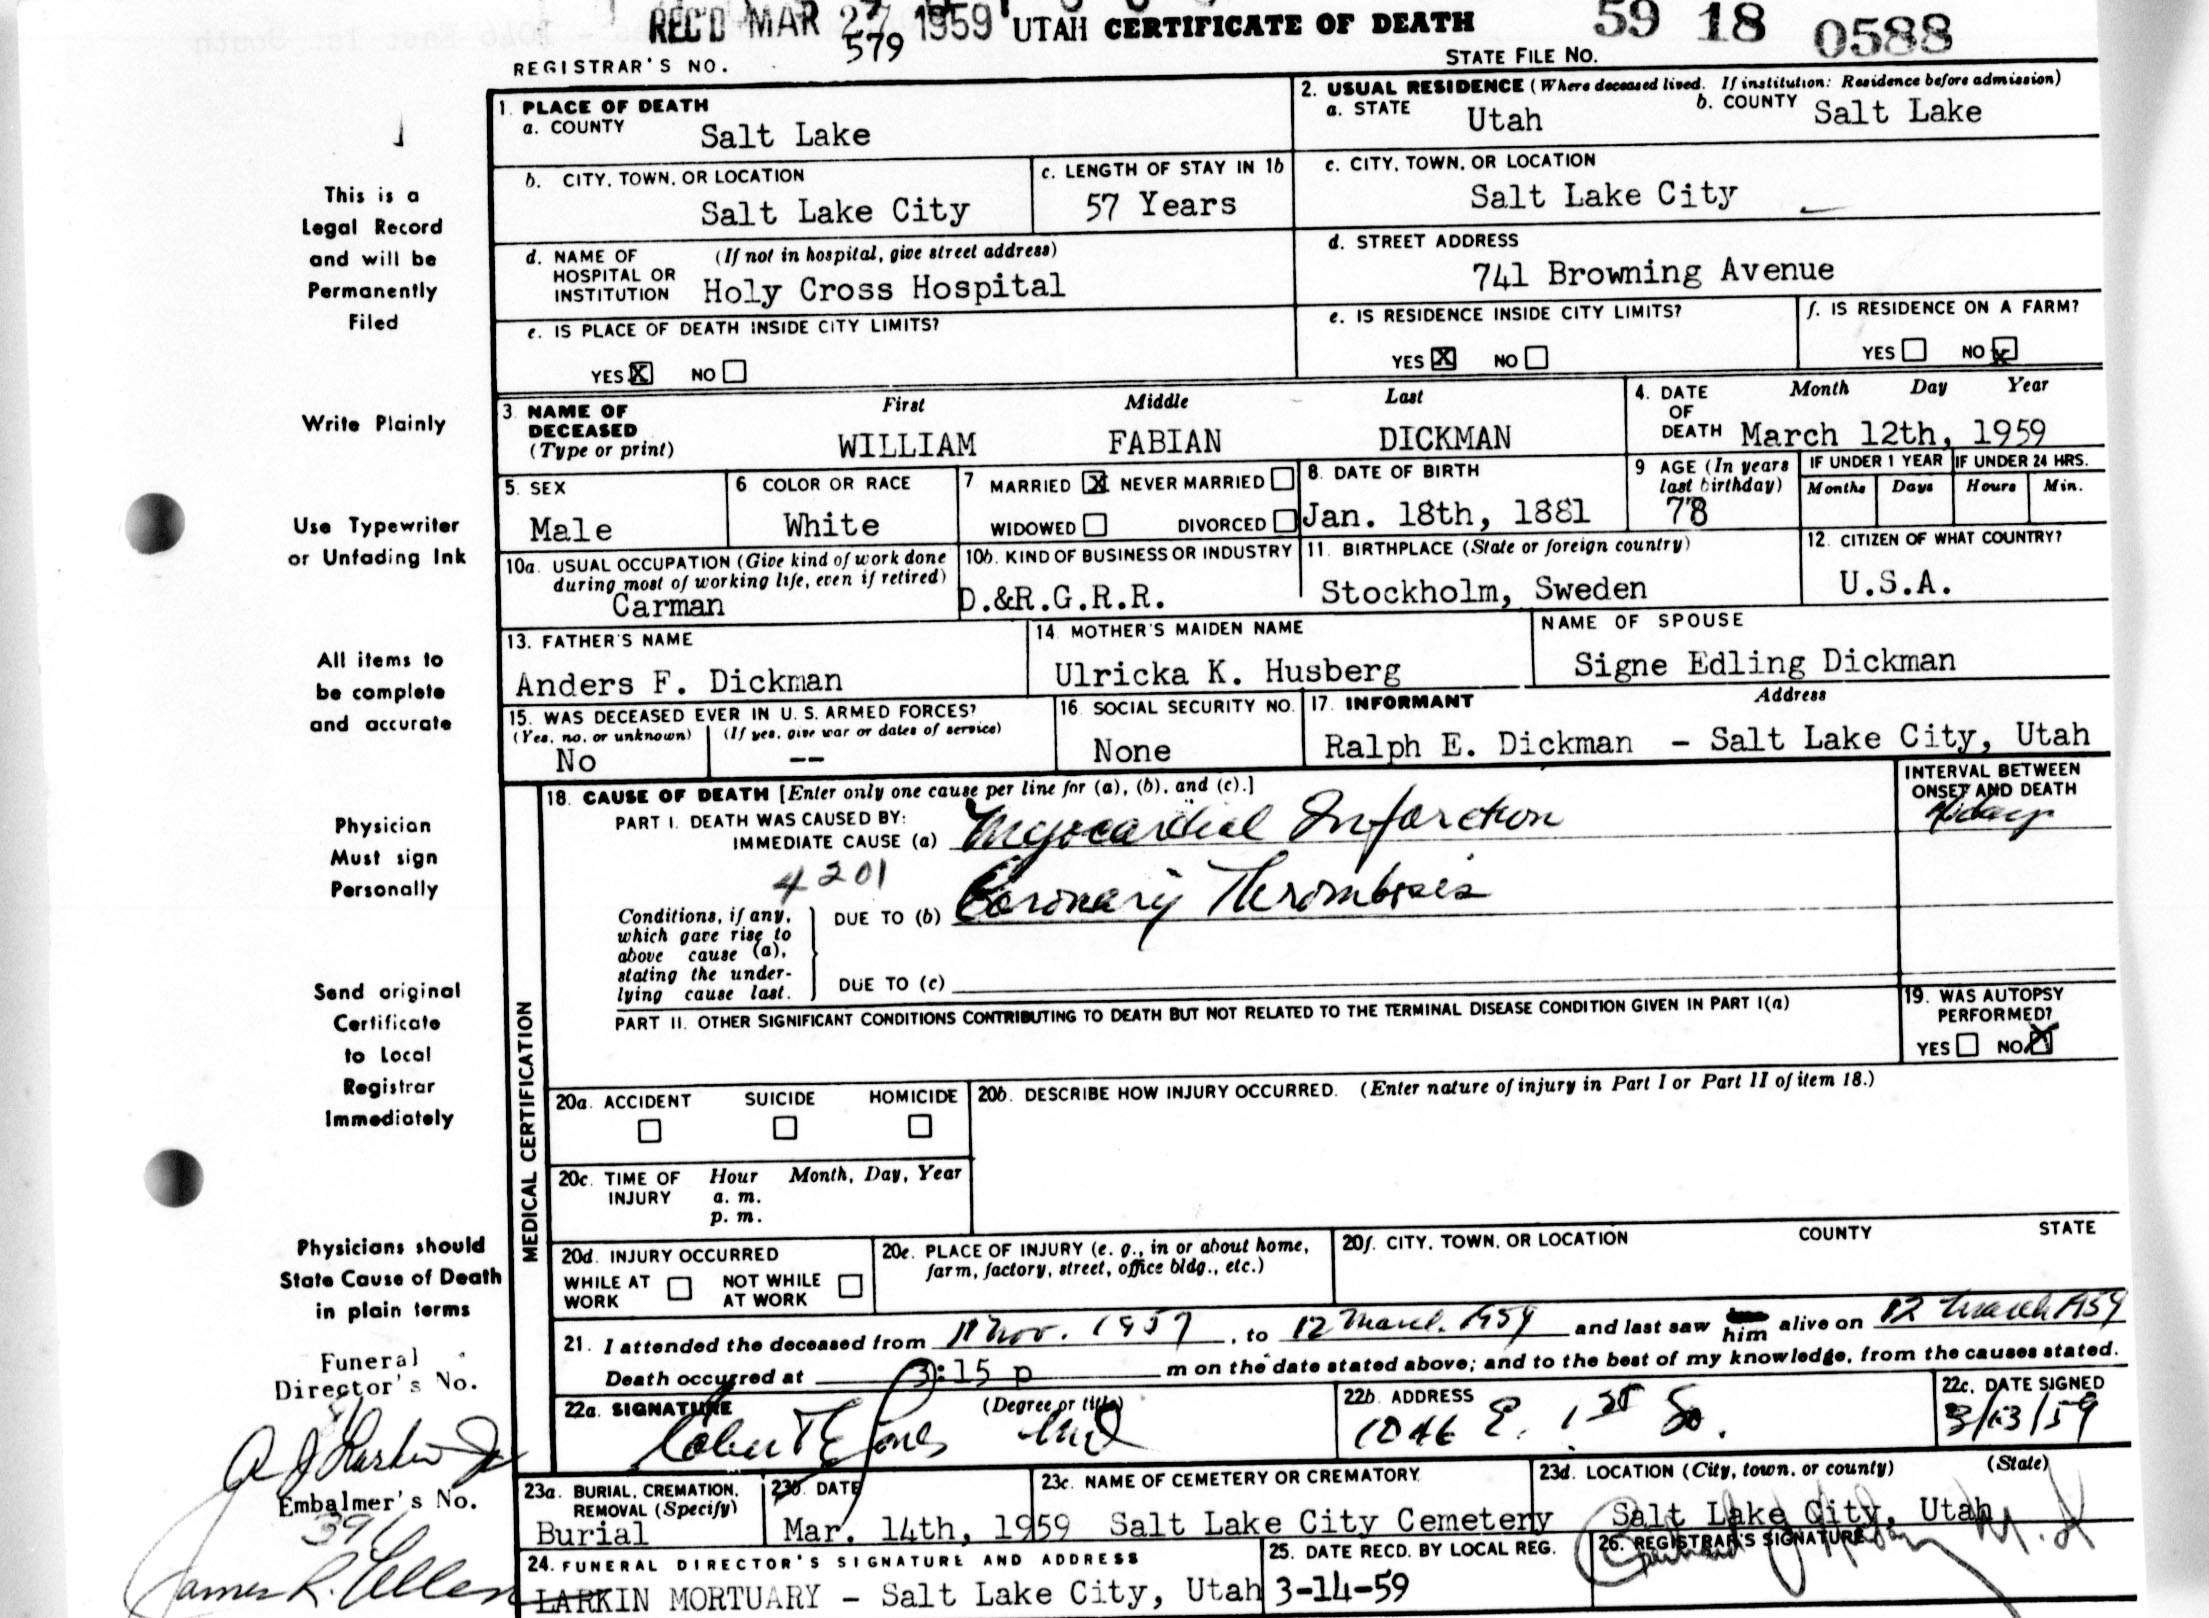 REC'D MAR 27 1959 UTAH CERTIFICATE OF DEATH 59 18 0588
REGISTRAR'S NO. 579 STATE FILE NO.
1. PLACE OF DEATH
a. COUNTY Salt Lake
2. USUAL RESIDENCE (Where deceased lived. If institution: Residence before admission)
a. STATE Utah b. COUNTY Salt Lake
b. CITY, TOWN, OR LOCATION Salt Lake City
c. LENGTH OF STAY IN 1b 57 Years
c. CITY, TOWN, OR LOCATION Salt Lake City
d. NAME OF HOSPITAL OR INSTITUTION (If not in hospital, give street address) Holy Cross Hospital
d. STREET ADDRESS 741 Browning Avenue
e. IS PLACE OF DEATH INSIDE CITY LIMITS?
YES X NO
e. IS RESIDENCE INSIDE CITY LIMITS?
YES X NO
f. IS RESIDENCE ON A FARM?
YES NO X
3. NAME OF DECEASED (Type or print)
First Middle Last
WILLIAM FABIAN DICKMAN
4. DATE OF DEATH Month Day Year
March 12th, 1959
5. SEX Male
6 COLOR OR RACE White
7 MARRIED X NEVER MARRIED
WIDOWED DIVORCED
8. DATE OF BIRTH Jan. 18th, 1881
9 AGE (In years last birthday) 78
IF UNDER 1 YEAR Months Days
IF UNDER 24 HRS. Hours Min.
10a. USUAL OCCUPATION (Give kind of work done during most of working life, even if retired) Carman
10b. KIND OF BUSINESS OR INDUSTRY D.&R.G.R.R.
11. BIRTHPLACE (State or foreign country) Stockholm, Sweden
12. CITIZEN OF WHAT COUNTRY? U.S.A.
13. FATHER'S NAME Anders F. Dickman
14. MOTHER'S MAIDEN NAME Ulricka K. Husberg
NAME OF SPOUSE Signe Edling Dickman
15. WAS DECEASED EVER IN U. S. ARMED FORCES?
(Yes, no, or unknown) (If yes, give war or dates of service)
No --
16. SOCIAL SECURITY NO. None
17. INFORMANT Address
Ralph E. Dickman - Salt Lake City, Utah
MEDICAL CERTIFICATION
18. CAUSE OF DEATH [Enter only one cause per line for (a), (b), and (c).]
INTERVAL BETWEEN ONSET AND DEATH
PART I. DEATH WAS CAUSED BY:
IMMEDIATE CAUSE (a) Myocardial Infarction
4201
Conditions, if any, which gave rise to above cause (a), stating the underlying cause last.
DUE TO (b) Coronary Thrombosis
DUE TO (c)
PART II. OTHER SIGNIFICANT CONDITIONS CONTRIBUTING TO DEATH BUT NOT RELATED TO THE TERMINAL DISEASE CONDITION GIVEN IN PART I(a)
19. WAS AUTOPSY PERFORMED?
YES NO X
20a. ACCIDENT SUICIDE HOMICIDE
20b. DESCRIBE HOW INJURY OCCURRED. (Enter nature of injury in Part I or Part II of item 18.)
20c. TIME OF INJURY Hour Month, Day, Year
a. m.
p. m.
20d. INJURY OCCURRED
WHILE AT WORK NOT WHILE AT WORK
20e. PLACE OF INJURY (e. g., in or about home, farm, factory, street, office bldg., etc.)
20f. CITY, TOWN, OR LOCATION COUNTY STATE
21. I attended the deceased from 11 Nov. 1957, to 12 March 1959 and last saw him alive on 12 March 1959
Death occurred at 3:15 p m on the date stated above; and to the best of my knowledge, from the causes stated.
22a. SIGNATURE (Degree or title)
Robert E Jones MD
22b. ADDRESS 1046 E. 1st So.
22c. DATE SIGNED 3/13/59
23a. BURIAL, CREMATION, REMOVAL (Specify) Burial
23b. DATE Mar. 14th, 1959
23c. NAME OF CEMETERY OR CREMATORY Salt Lake City Cemetery
23d. LOCATION (City, town, or county) (State)
Salt Lake City, Utah
24. FUNERAL DIRECTOR'S SIGNATURE AND ADDRESS
LARKIN MORTUARY - Salt Lake City, Utah
25. DATE RECD. BY LOCAL REG. 3-14-59
26. REGISTRAR'S SIGNATURE
M.D
This is a
Legal Record
and will be
Permanently
Filed
Write Plainly
Use Typewriter
or Unfading Ink
All items to
be complete
and accurate
Physician
Must sign
Personally
Send original
Certificate
to Local
Registrar
Immediately
Physicians should
State Cause of Death
in plain terms
Funeral
Director's No.
A J Larkin Jr
Embalmer's No.
391
James R. Allen